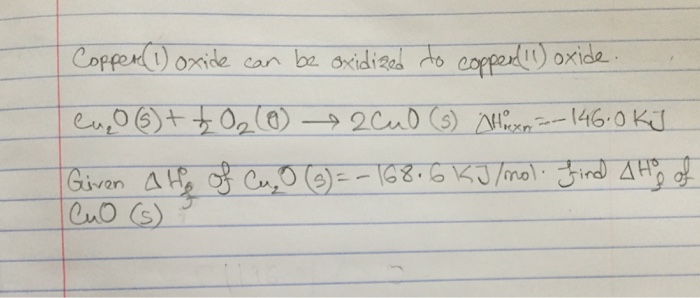 Copper(I) oxide can be oxidized to copper(II) oxide.
Cu₂O(s) + ½ O₂(g) → 2CuO(s) ΔH°rxn = -146.0 KJ
Given ΔH°f of Cu₂O(s) = -168.6 KJ/mol. find ΔH°f of
CuO (s)